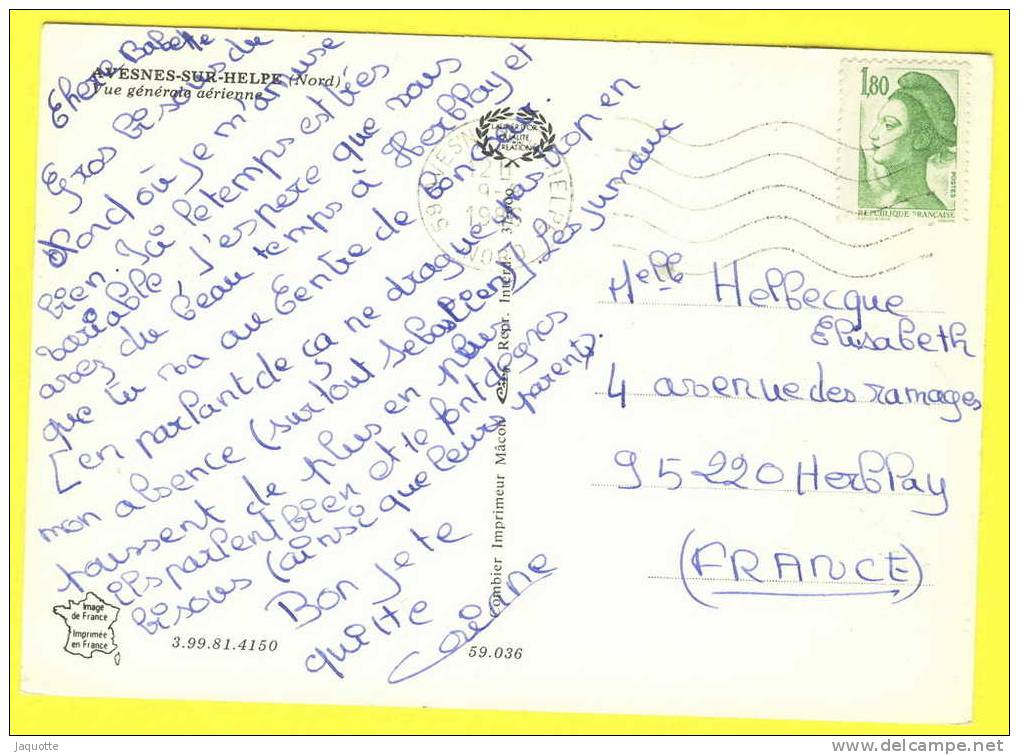 AVESNES-SUR-HELPE (Nord)
Vue générale aérienne
Chère Babette
Gros bisous du
Nord où je m'amuse
bien. Ici le temps est très
variable, j'espère que vous
avez du beau temps à Herblay et
que tu va au Centre de bon cœur.
[en parlant de ça ne drague pas Lion en
mon absence (surtout Sebastien)] Les jumaux
toussent de plus en plus
ils parlent bien et te font de gros
bisous (ainsi que leurs parents).
Bon je te
quitte
LAURIER D'OR
QUALITE
CREATION
NORD
1,80
POSTES
REPUBLIQUE FRANÇAISE
Melle Helbecque
Elisabeth
4 avenue des ramages
95220 Herblay
(FRANCE)
Combier Imprimeur Mâcon
Repr. Interd.
Image
de France
Imprimée
en France
3.99.81.4150
59.036
Jaquotte
www.delcampe.net